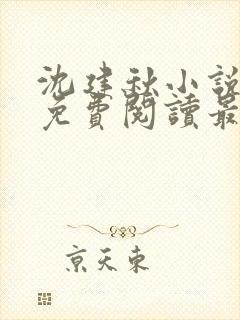 沈建秋小說
免費閱讀最
京天東